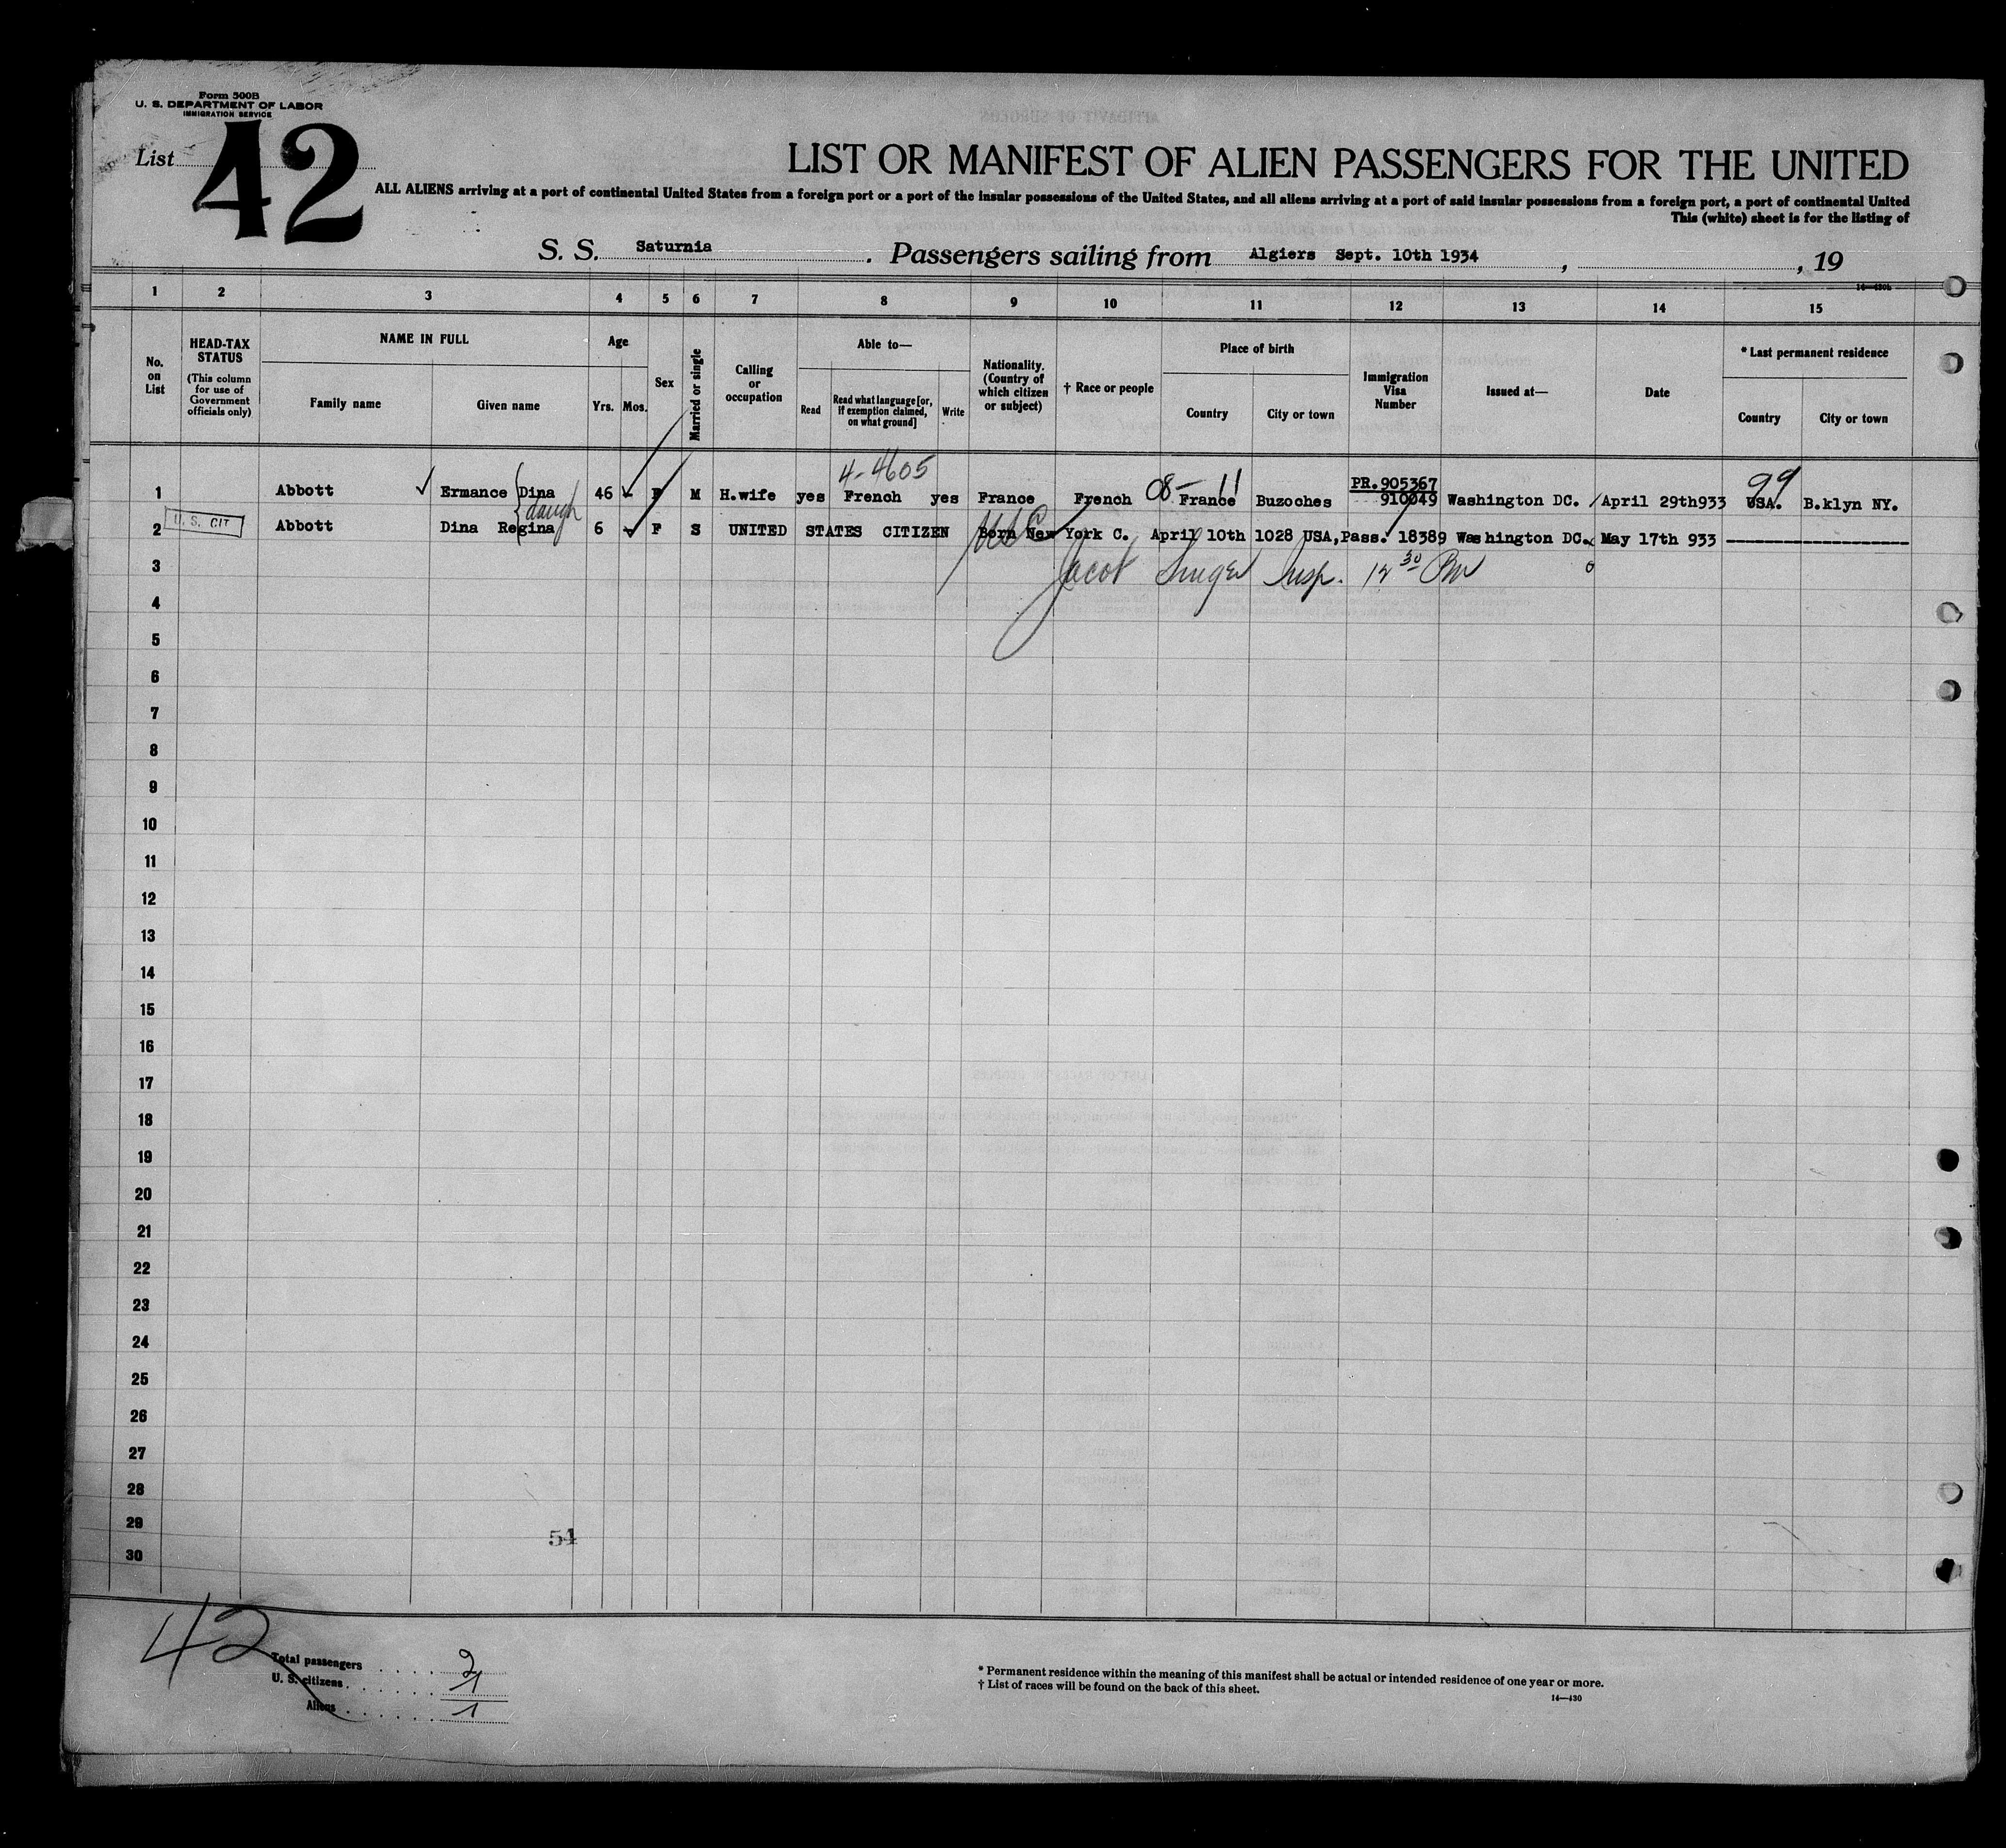 Form 500B
U. S. DEPARTMENT OF LABOR
IMMIGRATION SERVICE
List 42
LIST OR MANIFEST OF ALIEN PASSENGERS FOR THE UNITED
ALL ALIENS arriving at a port of continental United States from a foreign port or a port of the insular possessions of the United States, and all aliens arriving at a port of said insular possessions from a foreign port, a port of continental United
This (white) sheet is for the listing of
S. S. Saturnia. Passengers sailing from Algiers Sept. 10th 1934, , 19
14—430b
1 2 3 4 5 6 7 8 9 10 11 12 13 14 15
No. on List
HEAD-TAX STATUS
(This column for use of Government officials only)
NAME IN FULL
Family name Given name
Age
Yrs. Mos.
Sex
Married or single
Calling or occupation
Able to—
Read Read what language [or, if exemption claimed, on what ground] Write
Nationality. (Country of which citizen or subject)
† Race or people
Place of birth
Country City or town
Immigration Visa Number
Issued at—
Date
* Last permanent residence
Country City or town
4-4605
1 Abbott Ermance Dina 46 - F M H.wife yes French yes France French 08- France 11 Buzoches PR.905367 910049 Washington DC. April 29th933 USA. 99 B.klyn NY.
daugh
2 U. S. CIT Abbott Dina Regina 6 - F S UNITED STATES CITIZEN Born New York C. April 10th 1028 USA,Pass. 18389 Washington DC. May 17th 933
USC
3 Jacob Singer Insp. 12 30 PM
4
5
6
7
8
9
10
11
12
13
14
15
16
17
18
19
20
21
22
23
24
25
26
27
28
29
30
54
42
Total passengers . . . . 2
U. S. citizens . . . . . . 1
Aliens . . . . . . 1
* Permanent residence within the meaning of this manifest shall be actual or intended residence of one year or more.
† List of races will be found on the back of this sheet.
14—430